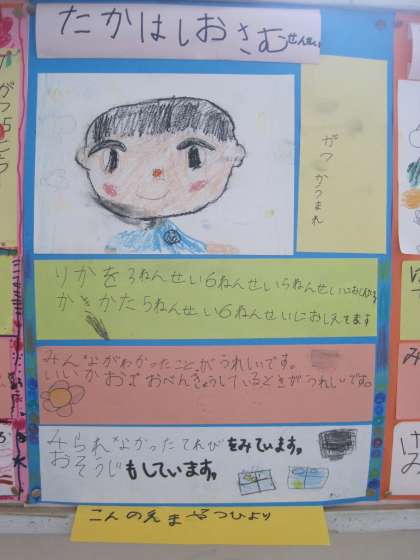 たかはしおさむせんせい
がつ かうまれ
りかを3ねんせい6ねんせい5ねんせいにおしえてる
かきかた5ねんせい6ねんせいにおしえてます
みんながわかったことがうれしいです。
いいかおでおべんきょうしているときがうれしいです。
みられなかったてれびをみています。
おそうじもしています。
こんのえま やつひより